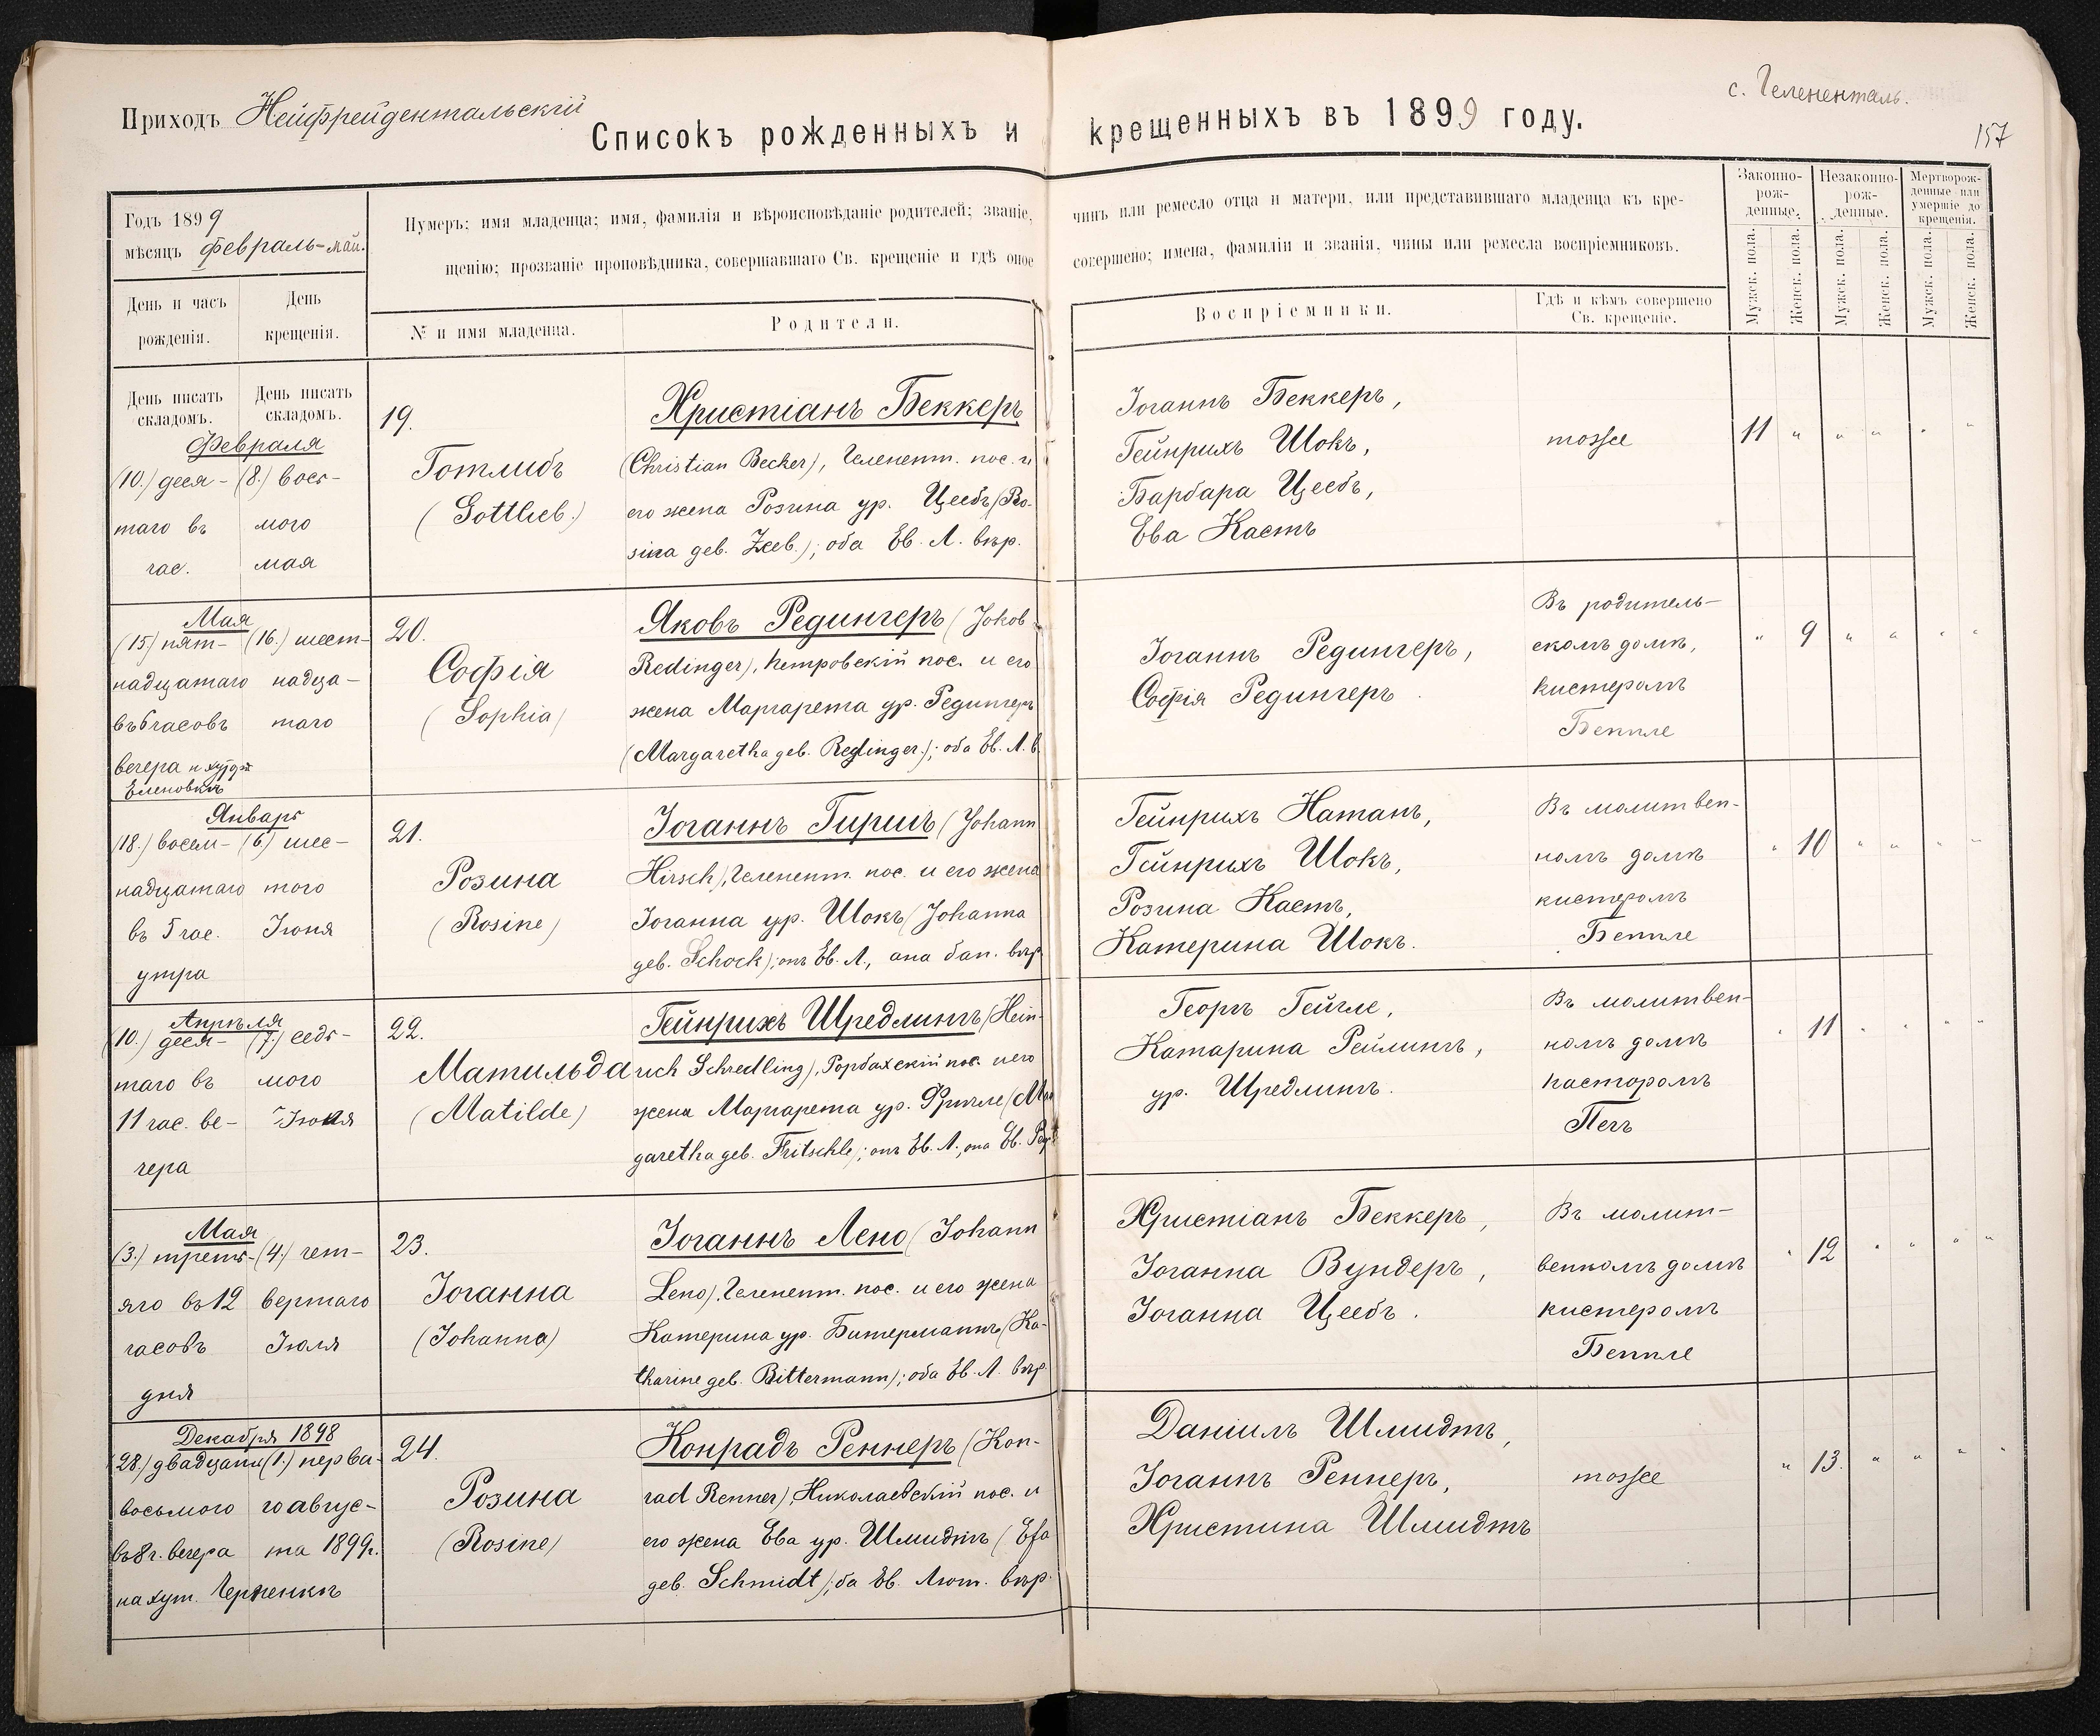 с. Гелененталь.
Приходъ Нейфрейдентальскій
Списокъ рожденныхъ и крещенныхъ въ 1899 году.
157
Годъ 1899
мѣсяцъ февраль-май.
Нумеръ: имя младенца; имя, фамилія и вѣроисповѣданіе родителей; званіе, чинъ или ремесло отца и матери, или представившаго младенца къ кре-
щенію; прозваніе проповѣдника, совершавшаго Св. крещеніе и гдѣ оное совершено; имена, фамиліи и званія, чины или ремесла воспріемниковъ.
Законно-
рож-
денные.
Незаконно-
рож-
денные.
Мертворож-
денные или
умершіе до
крещенія.
Мужск. пола.
Женск. пола.
Мужск. пола.
Женск. пола.
Мужск. пола.
Женск. пола.
День и часъ
рожденія.
День
крещенія.
№ и имя младенца.
Родители.
Воспріемники.
Гдѣ и кѣмъ совершено
Св. крещеніе.
День писать
складомъ.
День писать
складомъ.
Февраля
(10.) деся-
таго въ
час.
(8.) вось-
мого
мая
19.
Готлибъ
(Gottlieb.)
Христіанъ Беккеръ
(Christian Becker), Геленент. пос. и
его жена Розина ур. Цеебъ (Ro-
sina geb. Zeeb.); оба Ев. Л. вѣр.
Іоганнъ Беккеръ,
Гейнрихъ Шокъ,
Барбара Цеебъ,
Ева Кастъ
тоже
11 " " " " "
Мая
(15) пят-
надцатаго
въ 6 часовъ
вечера
Еленовкѣ
(16.) шест-
надца-
таго
20.
Софія
(Sophia)
Яковъ Редингеръ (Jokob
Redinger), Петровскій пос. и его
жена Маргарета ур. Редингеръ
(Margaretha geb. Redinger.); оба Ев. Л. в.
Іоганнъ Редингеръ,
Софія Редингеръ.
Въ родитель-
скомъ домѣ,
кистеромъ
Беппле
" 9 " " " "
Январь
(18.) восем-
надцатаго
въ 5 час.
утра
(6.) шес-
того
Іюня
21.
Розина
(Rosine)
Іоганнъ Гиршъ (Johann
Hirsch), Геленент. пос. и его жена
Іоганна ур. Шокъ (Johanna
geb. Schock); онъ Ев. Л., она бап. вѣр.
Гейнрихъ Натанъ,
Гейнрихъ Шокъ,
Розина Кастъ,
Катерина Шокъ.
Въ молитвен-
номъ домѣ
кистеромъ
Беппле
" 10 " " " "
Апрѣля
(10.) деся-
таго въ
11 час. ве-
чера
(7.) седь-
мого
Іюня
22.
Матильда
(Matilde)
Гейнрихъ Шредлингъ (Hein-
rich Schredling), Рорбахскій пос. и его
жена Маргарета ур. Фричле (Mar
garetha geb. Fritschle); онъ Ев. Л., она Ев. Реф.
Георгъ Гейгле,
Катарина Рейлингъ,
ур. Шредлингъ.
Въ молитвен-
номъ домѣ
пасторомъ
Печъ
" 11 " " " "
Мая
(3.) треть-
яго въ 12
часовъ
дня
(4.) чет-
вертаго
Іюля
23.
Іоганна
(Johanna)
Іоганнъ Лено (Johann
Leno), Геленент. пос. и его жена
Катерина ур. Битерманнъ (Ka-
tharine geb. Bittermann); оба Ев. Л. вѣр.
Христіанъ Беккеръ,
Іоганна Вундеръ,
Іоганна Цеебъ.
Въ молит-
венномъ домѣ
кистеромъ
Беппле
" 12 " " " "
Декабря 1898
(28.) двадцать
восьмого
въ 8 ч. вечера
на хут.
(1.) перва-
го авгус-
та 1899 г.
24.
Розина
(Rosine)
Конрадъ Реннеръ (Kon-
rad Renner), Николаевскій пос. и
его жена Ева ур. Шмидтъ (Efa
geb. Schmidt); ба Ев. Лют. вѣр.
Даніилъ Шмидтъ,
Іоганнъ Реннеръ,
Христина Шмидтъ
тоже
" 13. " " " "